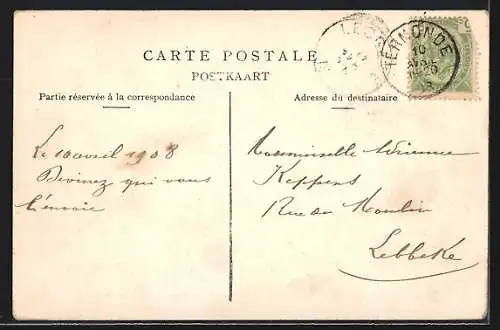 CARTE POSTALE
POSTKAART
Partie réservée à la correspondance
Adresse du destinataire
TERMONDE
10
AVRIL
Le 10 avril 1908
Devinez qui vous
l'envoie
Mademoiselle Adrienne
Keppens
Rue du Moulin
Lebbeke